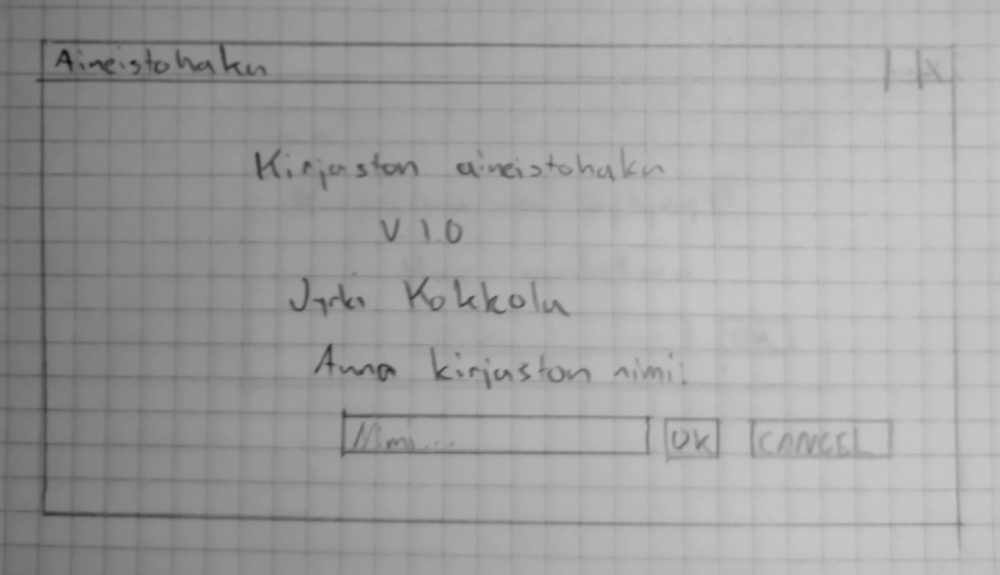 Aineistohaku X
Kirjaston aineistohaku
V 1.0
Jyrki Kokkola
Anna kirjaston nimi:
Nimi... OK CANCEL